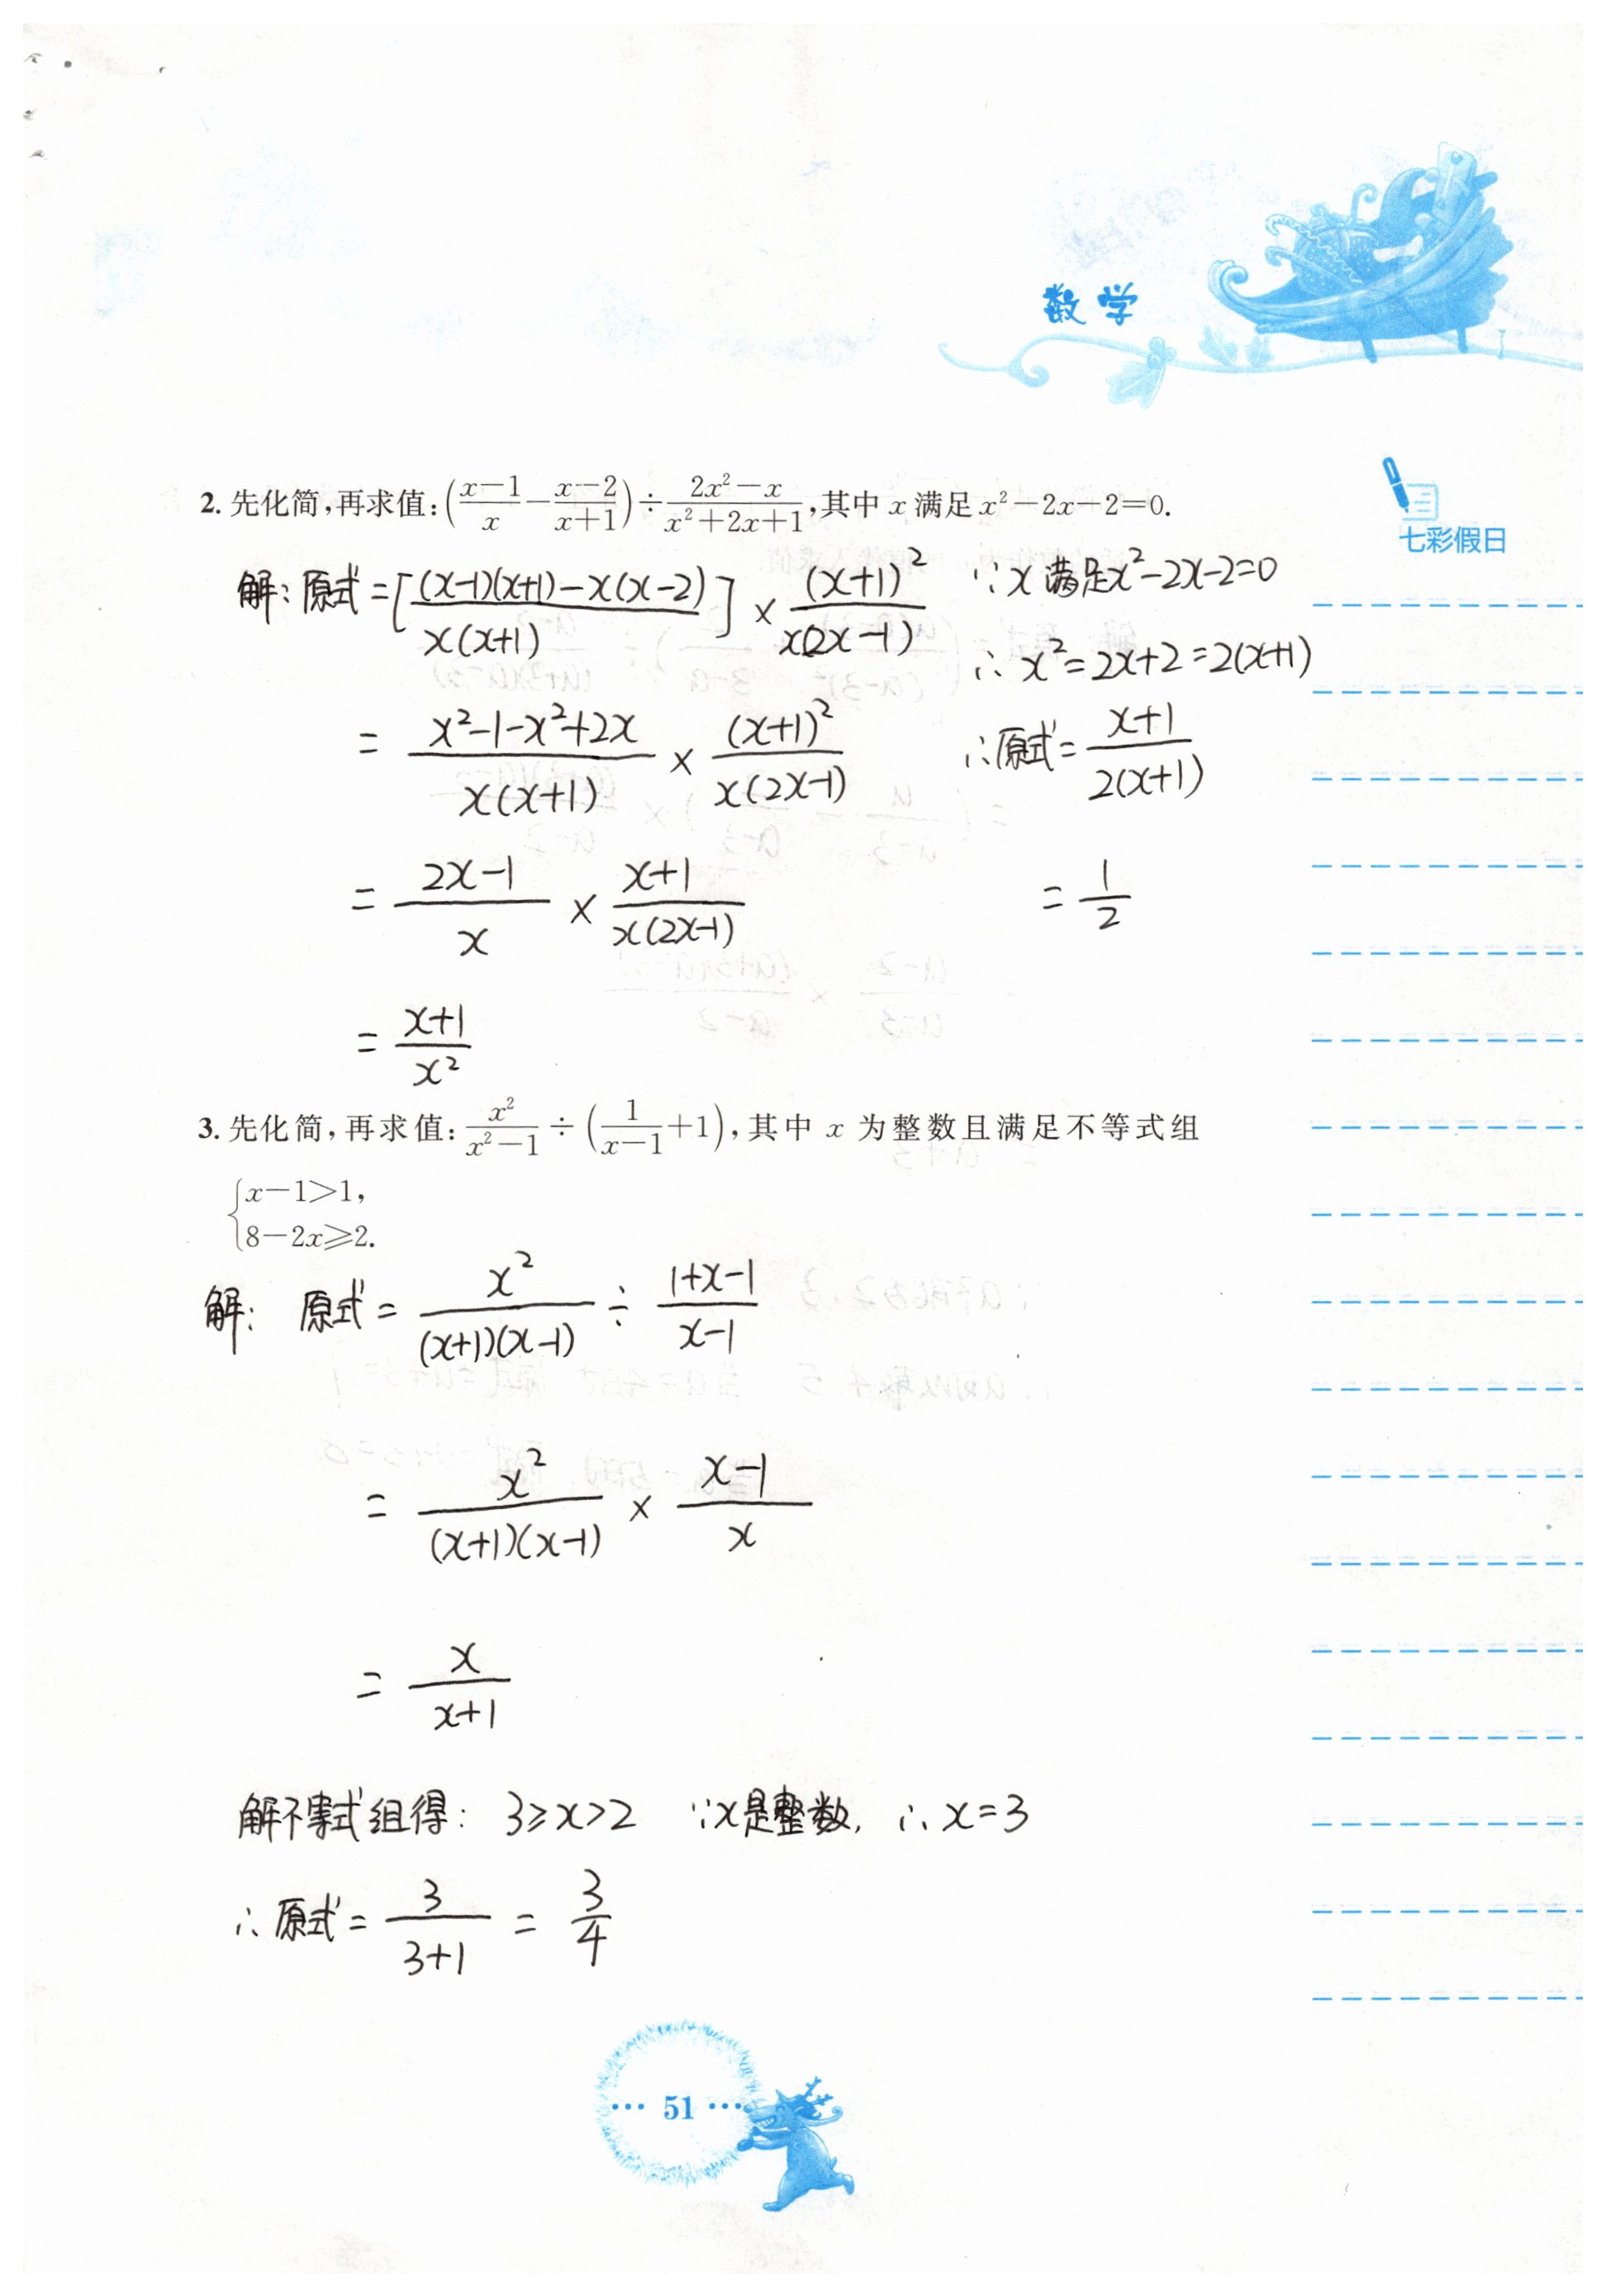 数学
七彩假日
2. 先化简,再求值:((x-1)/x - (x-2)/(x+1)) ÷ (2x²-x)/(x²+2x+1),其中 x 满足 x²-2x-2=0.
解:原式=[((x-1)(x+1)-x(x-2))/(x(x+1))] × (x+1)²/(x(2x-1))
= (x²-1-x²+2x)/(x(x+1)) × (x+1)²/(x(2x-1))
= (2x-1)/x × (x+1)/(x(2x-1))
= (x+1)/x²
∵x满足x²-2x-2=0
∴x²=2x+2=2(x+1)
∴原式=(x+1)/(2(x+1))
= 1/2
3. 先化简,再求值:x²/(x²-1) ÷ (1/(x-1)+1),其中 x 为整数且满足不等式组
{x-1>1,
8-2x⩾2.
解: 原式= x²/((x+1)(x-1)) ÷ (1+x-1)/(x-1)
= x²/((x+1)(x-1)) × (x-1)/x
= x/(x+1)
解不等式组得: 3≥x>2 ∵x是整数, ∴x=3
∴原式= 3/(3+1) = 3/4
··· 51 ···